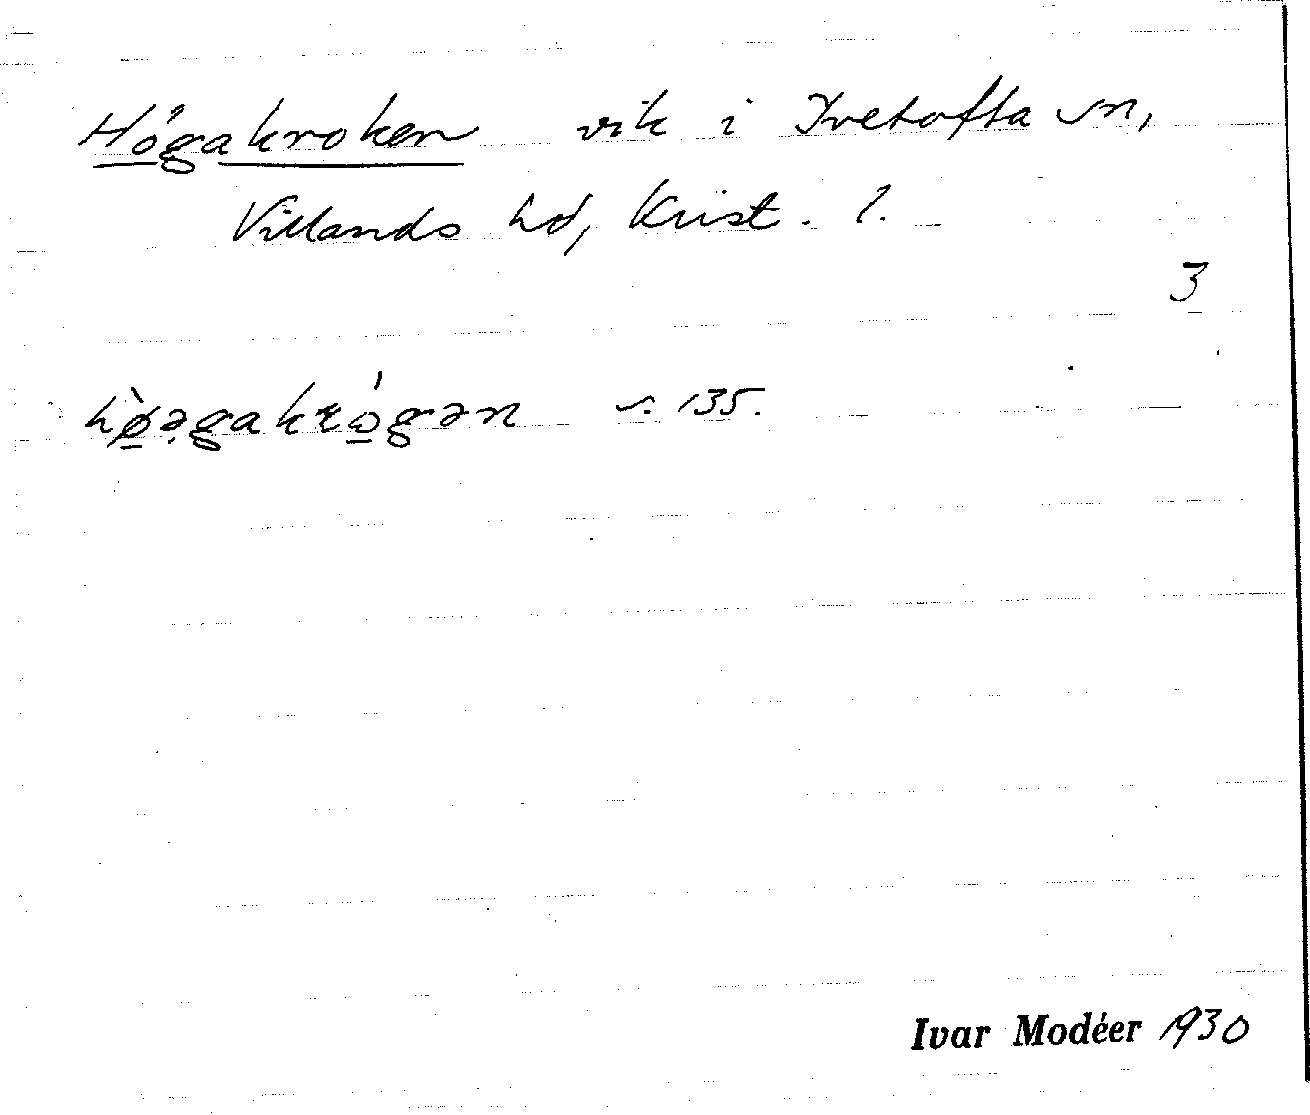 Högakroken vik i Ivetofta sn,
Villands hd, Krist. l.
3
hø̀əgakrógən s. 135.
Ivar Modéer 1930